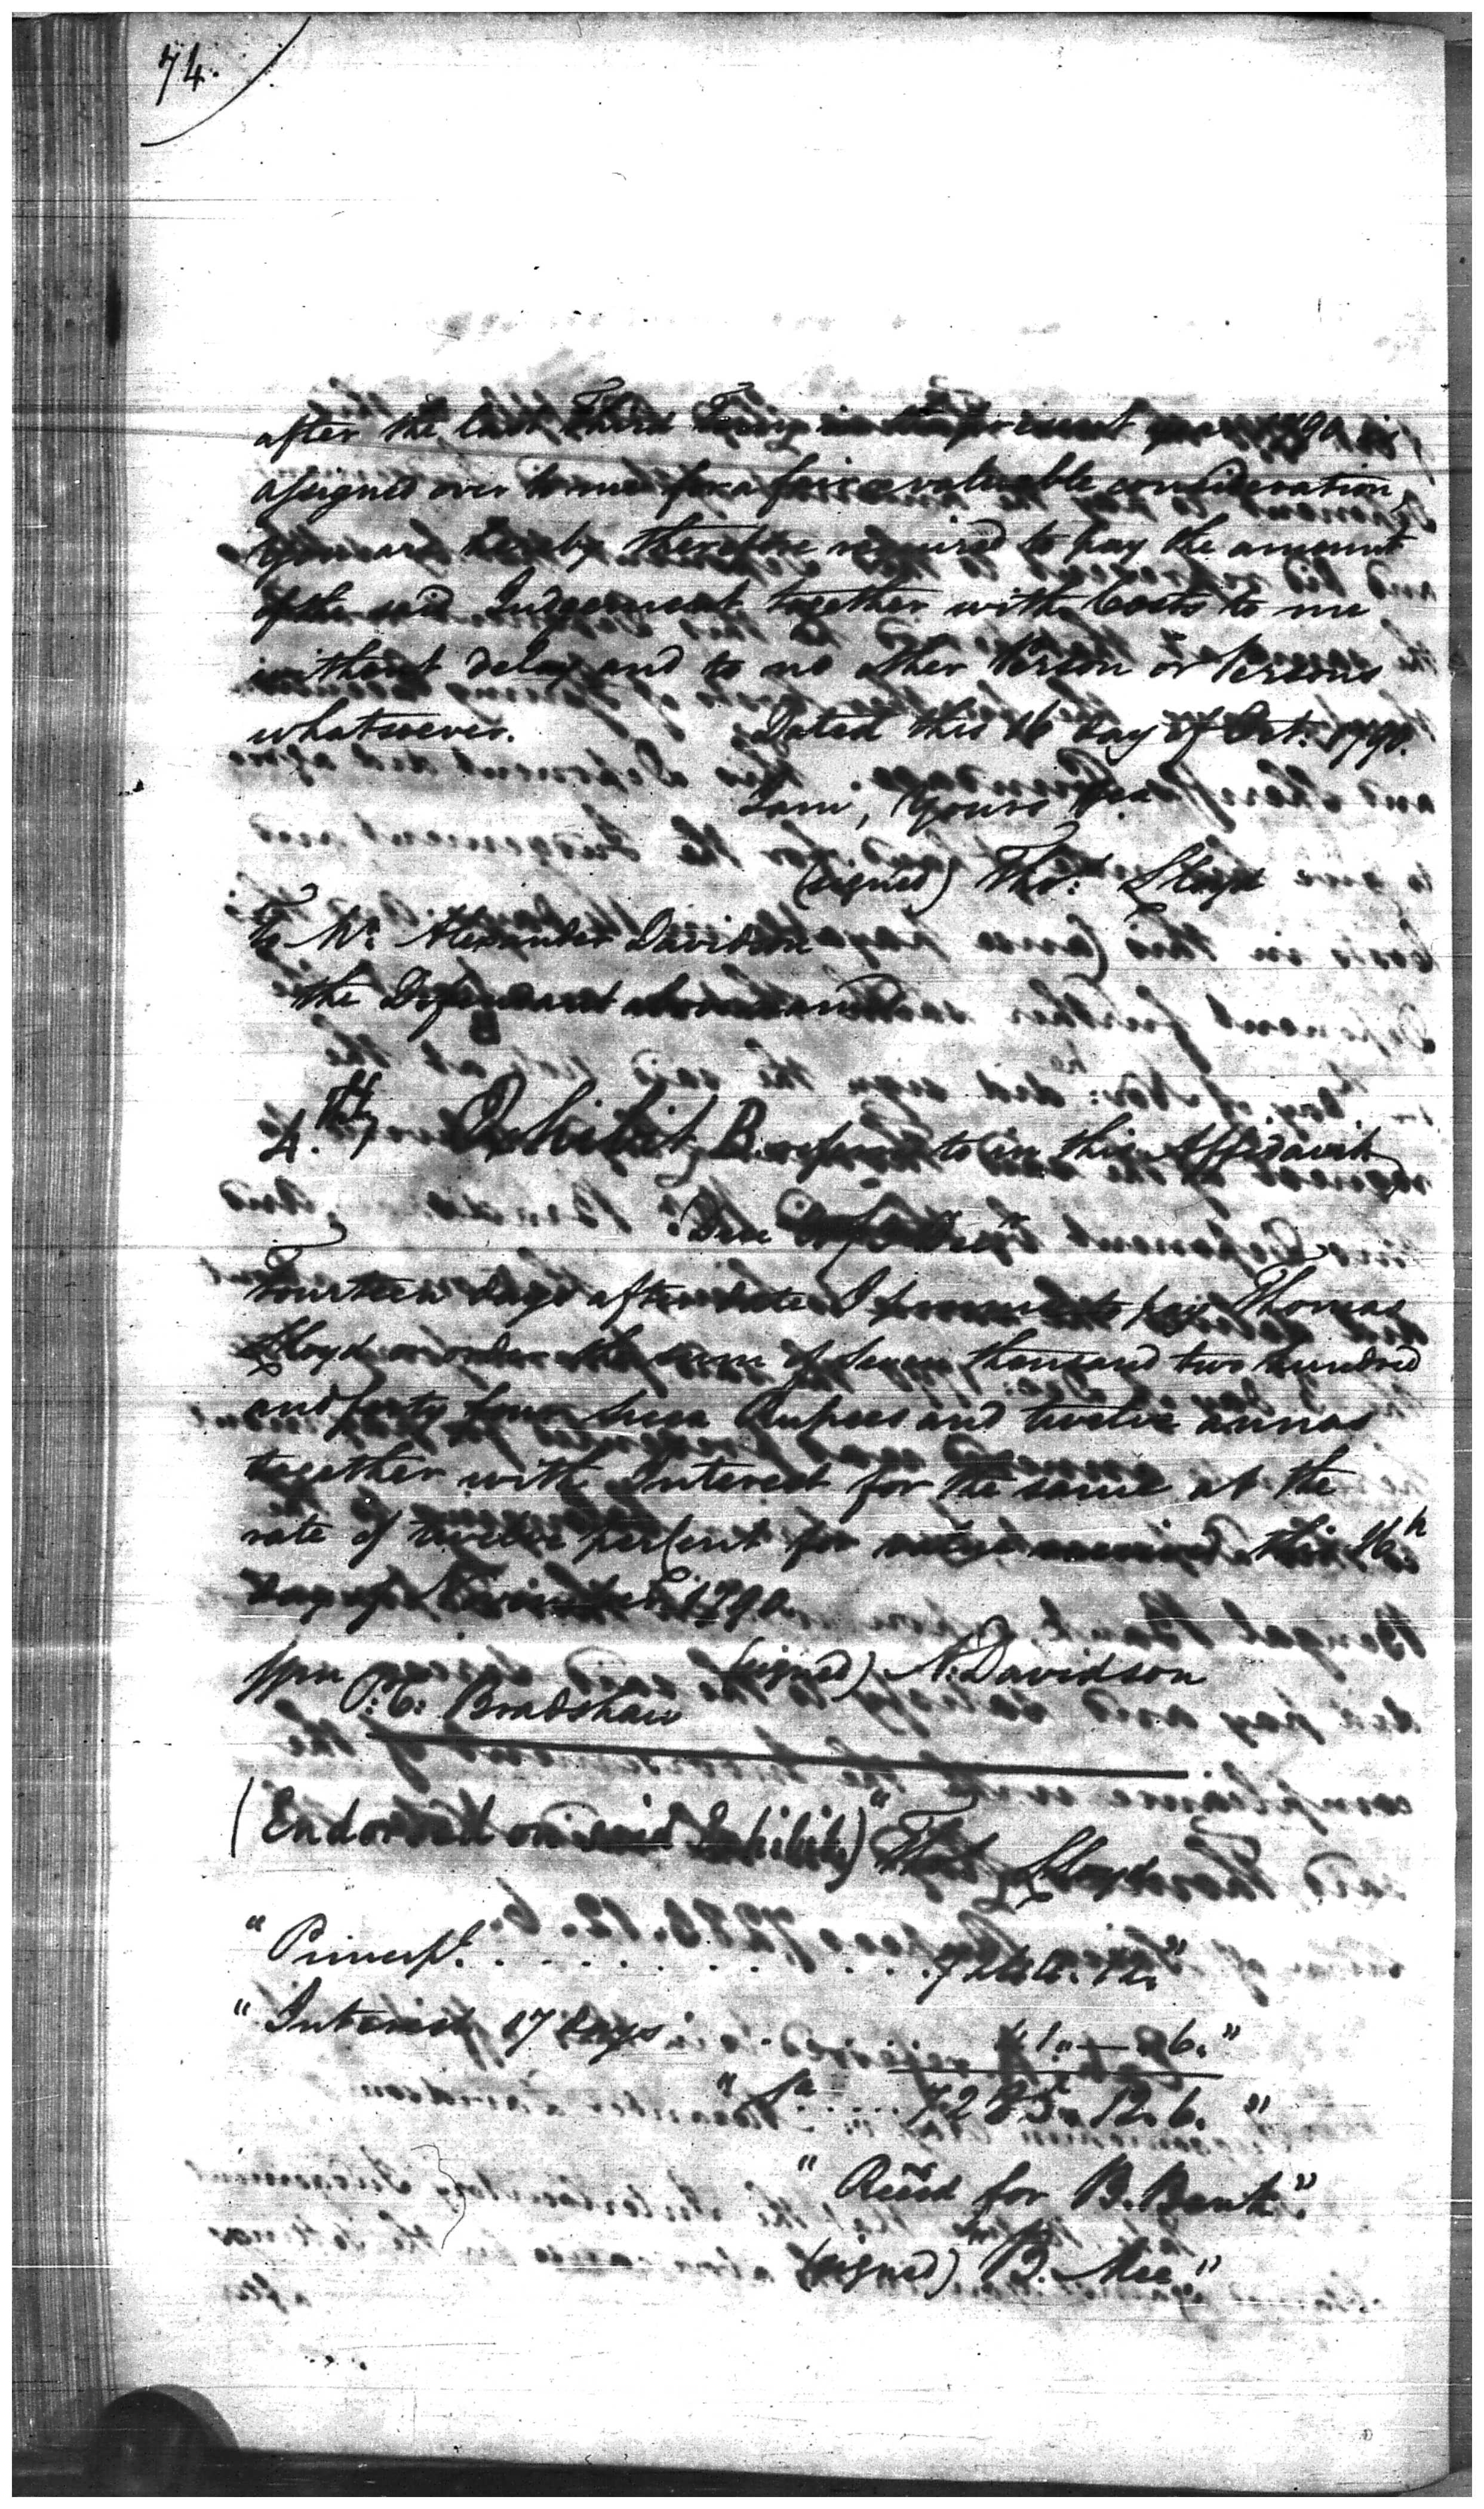 74.
after the last Third Term in the present year 1790 is
assigned over to me for a fair & valuable consideration,
you are hereby therefore required to pay the amount
of the said Judgement together with Costs to me
without delay and to no other Person or Persons
whatsoever. Dated this 16 day of Oct: 1790.
I am, Yours &ca
(signed) Thos: Lloyd
To Mr. Alexander Davidson
the Defendant abovenamed
4.th Exhibit B. referred to in this Affidavit
Due
Fourteen days after date I promise to pay Thomas
Lloyd or order the sum of seven thousand two hundred
and forty four Sicca Rupees and twelve annas
together with Interest for the same at the
rate of twelve per Cent for this 16.h
day of November 1790.
(signed) A. Davidson
P: C: Bradshaw
(Endorsed on said Exhibit) "Thos. Lloyd
"Princip.l . . . . . . . . . 7244. 12."
"Interest 17 days 41 „ — 6."
" Sa 7285. 12. 6. "
" Reced for B. Bank."
(signed) B. Mee"